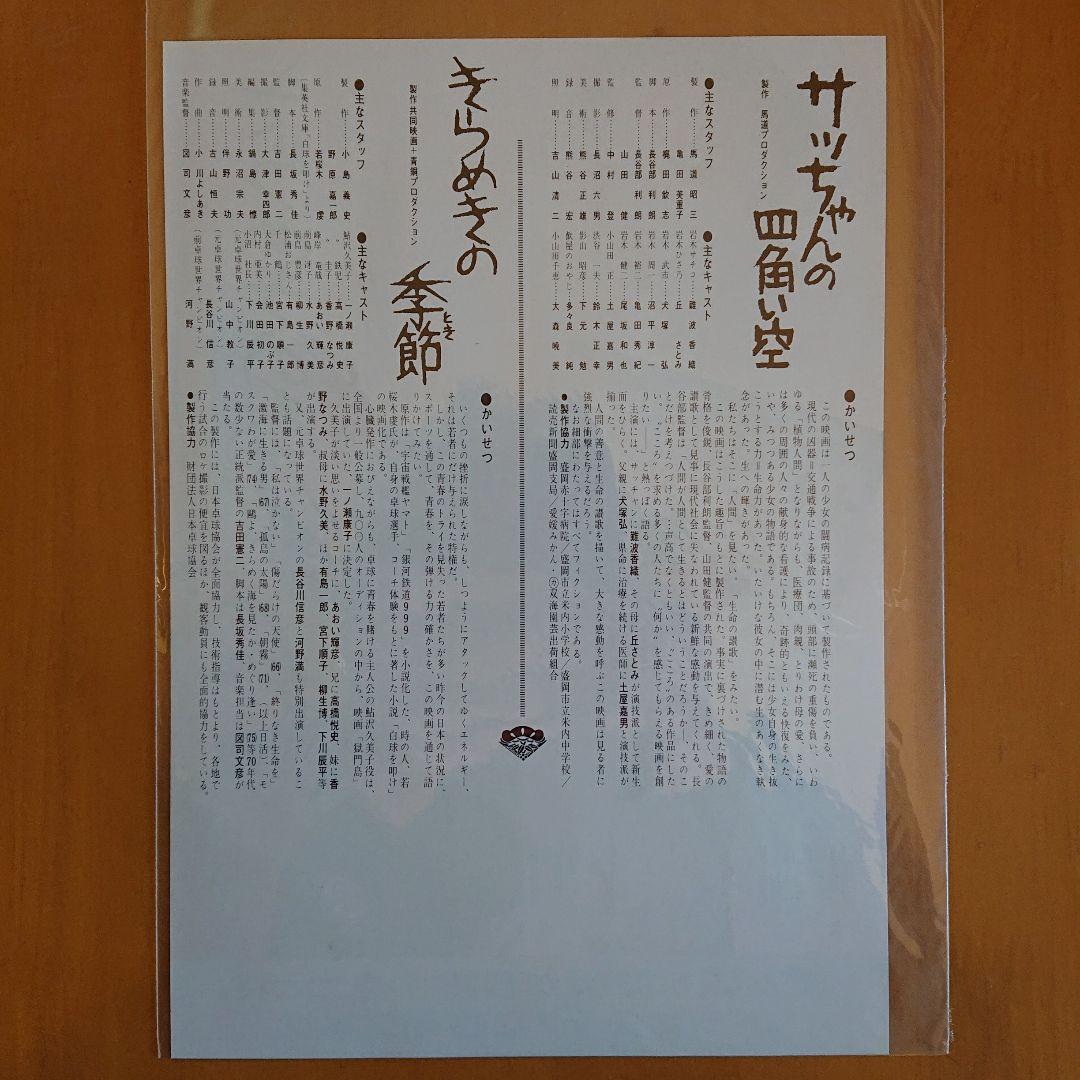 サッちゃんの
四角い空
製作 馬道プロダクション
●主なスタッフ
製作……馬道昭三
亀田美重子
原作……梶田欽志
脚本……長谷部利朗
監督……長谷部利朗
山田健
監修……中村登
撮影……長沼六男
美術……熊谷正雄
録音……熊谷宏
照明……吉山清二
●主なキャスト
岩木サチコ……難波香織
岩木ひさ乃……丘さとみ
岩木武市……犬塚弘
岩木周一……沼平淳一
岩木裕二……亀田秀紀
岩木健三……尾坂和也
小山田正……土屋嘉男
渋谷一夫……鈴木正幸
影山昭彦……下元勉
飯屋のおやじ……多々良純
小山田千恵……大森暁美
●かいせつ
この映画は一人の少女の闘病記録に基づいて製作されたものである。
現代の凶器＝交通戦争による事故のため、頭部に瀕死の重傷を負い、いわ
ゆる「植物人間」となりながらも、医療団、肉親、とりわけ母の愛、さらに
は多くの周囲の人々の献身的な看護により、奇跡的ともいえる快復をみた、
いや、みつつある少女の物語である。もちろん、そこには少女自身の生き抜
こうとする力＝生命力があった。いたいけな彼女の中に潜む生のあくなき執
念があった。生への輝きがあった。
私たちはそこに「人間」を見たい。「生命の讃歌」をみたい。
この映画はこうした趣旨のもとに製作された。事実に裏づけされた物語の
骨格を俊鋭、長谷部利朗監督、山田健監督の共同の演出で、きめ細く、愛の
讃歌として見事に現代社会に失なわれている新鮮な感動を与えてくれる。長
谷部監督は「人間が人間として生きるとはどういうことだろうか――、そのこ
とだけを考えつづけた。…声高でなくともいい、“こころ”のある作品にした
い。“こころ”を求める多くの人たちに“何か”を感じてもらえる映画を創
りたい――」と熱っぽく語る。
主演には、サッチャンに難波香織、その母に丘さとみが演技派として新生
面をひらく。父親に犬塚弘、県命に治療を続ける医師に土屋嘉男と演技派が
揃った。
人間の善意と生命の讃歌を描いて、大きな感動を呼ぶこの映画は見る者に
強烈な衝撃を与えるだろう。
なお細部にわたってはすべてフィクションである。
●製作協力 盛岡赤十字病院／盛岡市立米内小学校／盛岡市立米内中学校／
読売新聞盛岡支局／愛媛みかん・㋕双海園芸出荷組合
きらめきの
季節
とき
製作 共同映画＋青銅プロダクション
●主なスタッフ
製作……小島義史
野原嘉一郎
原作……若桜木虔
（集英社文庫「白球を叩け」より）
脚本……長坂秀佳
監督……吉田憲二
撮影……大津幸四郎
編集……鍋島惇
美術……永沼宗夫
照明……伴野功
録音……古山恒夫
作曲……小川よしあき
音楽監督……図司文彦
●主なキャスト
鮎沢久美子……一ノ瀬康子
〃 鉄児……高橋悦史
〃 圭子……香野なつみ
峰岸竜哉……あおい輝彦
前島冴子……水野久美
前島豊彦……柳生博
松浦おじさん……有島一郎
千鶴……宮下順子
大倉ゆかり……池田のぶ子
内村亜美……会田初子
小沼社長……下川辰平
（元卓球世界チャンピオン）
山中教子
（元卓球世界チャンピオン）
長谷川信彦
（前卓球世界チャンピオン）
河野満
●かいせつ
いくつもの挫折に涙しながらも、しつようにアタックしてゆくエネルギー、
それは若者にだけ与えられた特権だ。
しかし、この青春のトライを見失った若者たちが多い昨今の日本の状況に、
スポーツを通して、青春を、その弾ける力の確かさを、この映画を通じて語
りかけてみたい。
原作は「宇宙戦艦ヤマト」「銀河鉄道９９９」を小説化した、時の人、若
桜木虔氏が、自身の卓球選手、コーチ体験をもとに著した小説「白球を叩け」
の映画化である。
心臓発作におびえながらも、卓球に青春を賭ける主人公の鮎沢久美子役は、
全国より一般公募し、九〇〇人のオーディションの中から、映画「獄門島」
に出演していた、一ノ瀬康子に決定した。
久美子が淡い思いをよせるコーチに、あおい輝彦、兄に高橋悦史、妹に香
野なつみ、叔母に水野久美、ほか有島一郎、宮下順子、柳生博、下川辰平等
が出演する。
又、元卓球世界チャンピオンの長谷川信彦と河野満も特別出演しているこ
とも話題になっている。
監督には、「私は泣かない」「傷だらけの天使」（66）「終りなき生命を」
「激海に生きる男」（67）、「孤島の太陽」（68）「朝霧」（71）、（以上日活）、「モ
スクワわが愛」（74）「鴎よ、きらめく海を見たか・めぐり逢い」（75）等70年代
の数少ない正統派監督の吉田憲二、脚本は長坂秀佳、音楽担当は図司文彦が
当たる。
この製作には、日本卓球協会が全面協力し、技術指導はもとより、各地で
行う試合のロケ撮影の便宜を図るほか、観客動員にも全面的協力をしている。
●製作協力 財団法人日本卓球協会